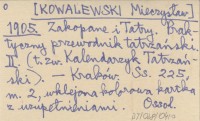 [KOWALEWSKI Mieczysław]
1905. Zakopane i Tatry. Prak-
tyczny przewodnik tatrzański.
II. (t. zw. Kalendarzyk Tatrzań-
ski). — Kraków. Ss. 225,
m. 2, wklejona kolorowa kartka
z uzupełnieniami. Ossol.